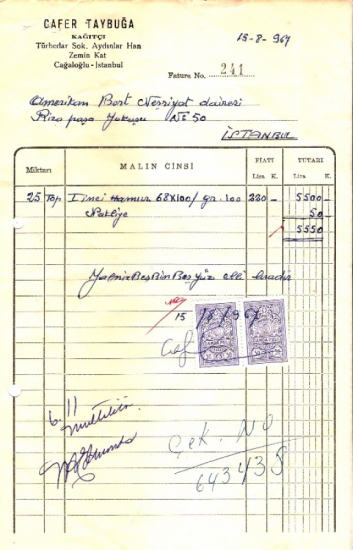 CAFER TAYBUĞA
KAĞITÇI
Türbedar Sok. Aydınlar Han
Zemin Kat
Cağaloğlu - İstanbul
15-8-967
Fatura No. 241
Amerikan Bort Neşriyat dairesi
Rıza paşa Yokuşu No 50
İSTANBUL
Miktarı MALIN CİNSİ FİATI TUTARI
Lira K. Lira K.
25 Top 1 inci Hamur 68x100/gr. 100 220 - 5500 -
Nakliye 50 -
5550
Yalnız Beş Bin Beş Yüz elli liradır
15
Çek. No
643438